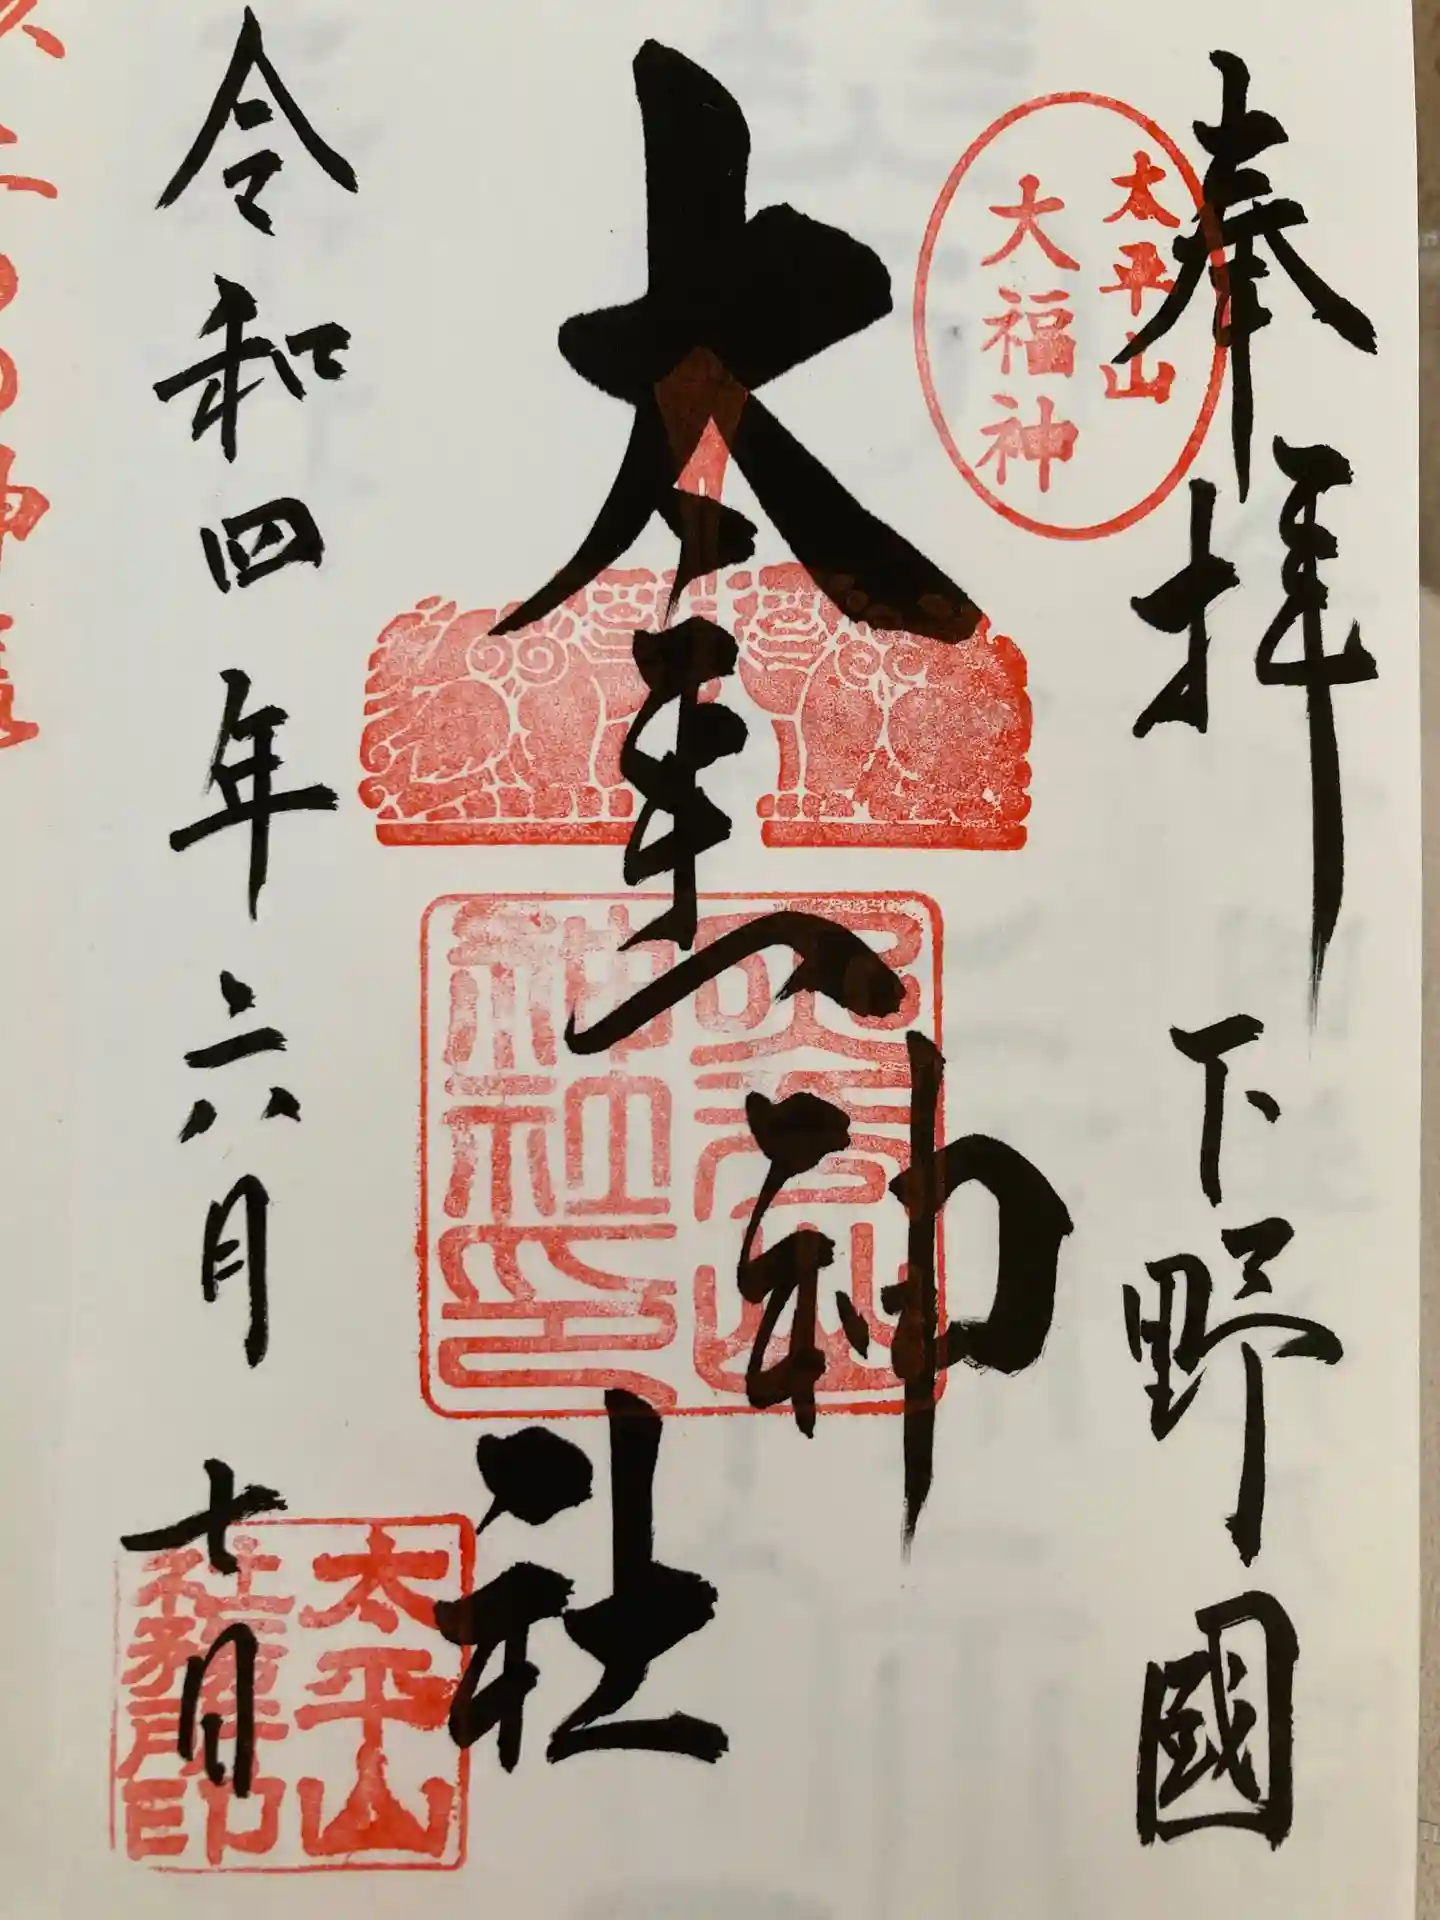 奉拝 下野國
太平山
大福神
太平山神社
太平山
神社印
令和四年六月七日
太平山
社務所印